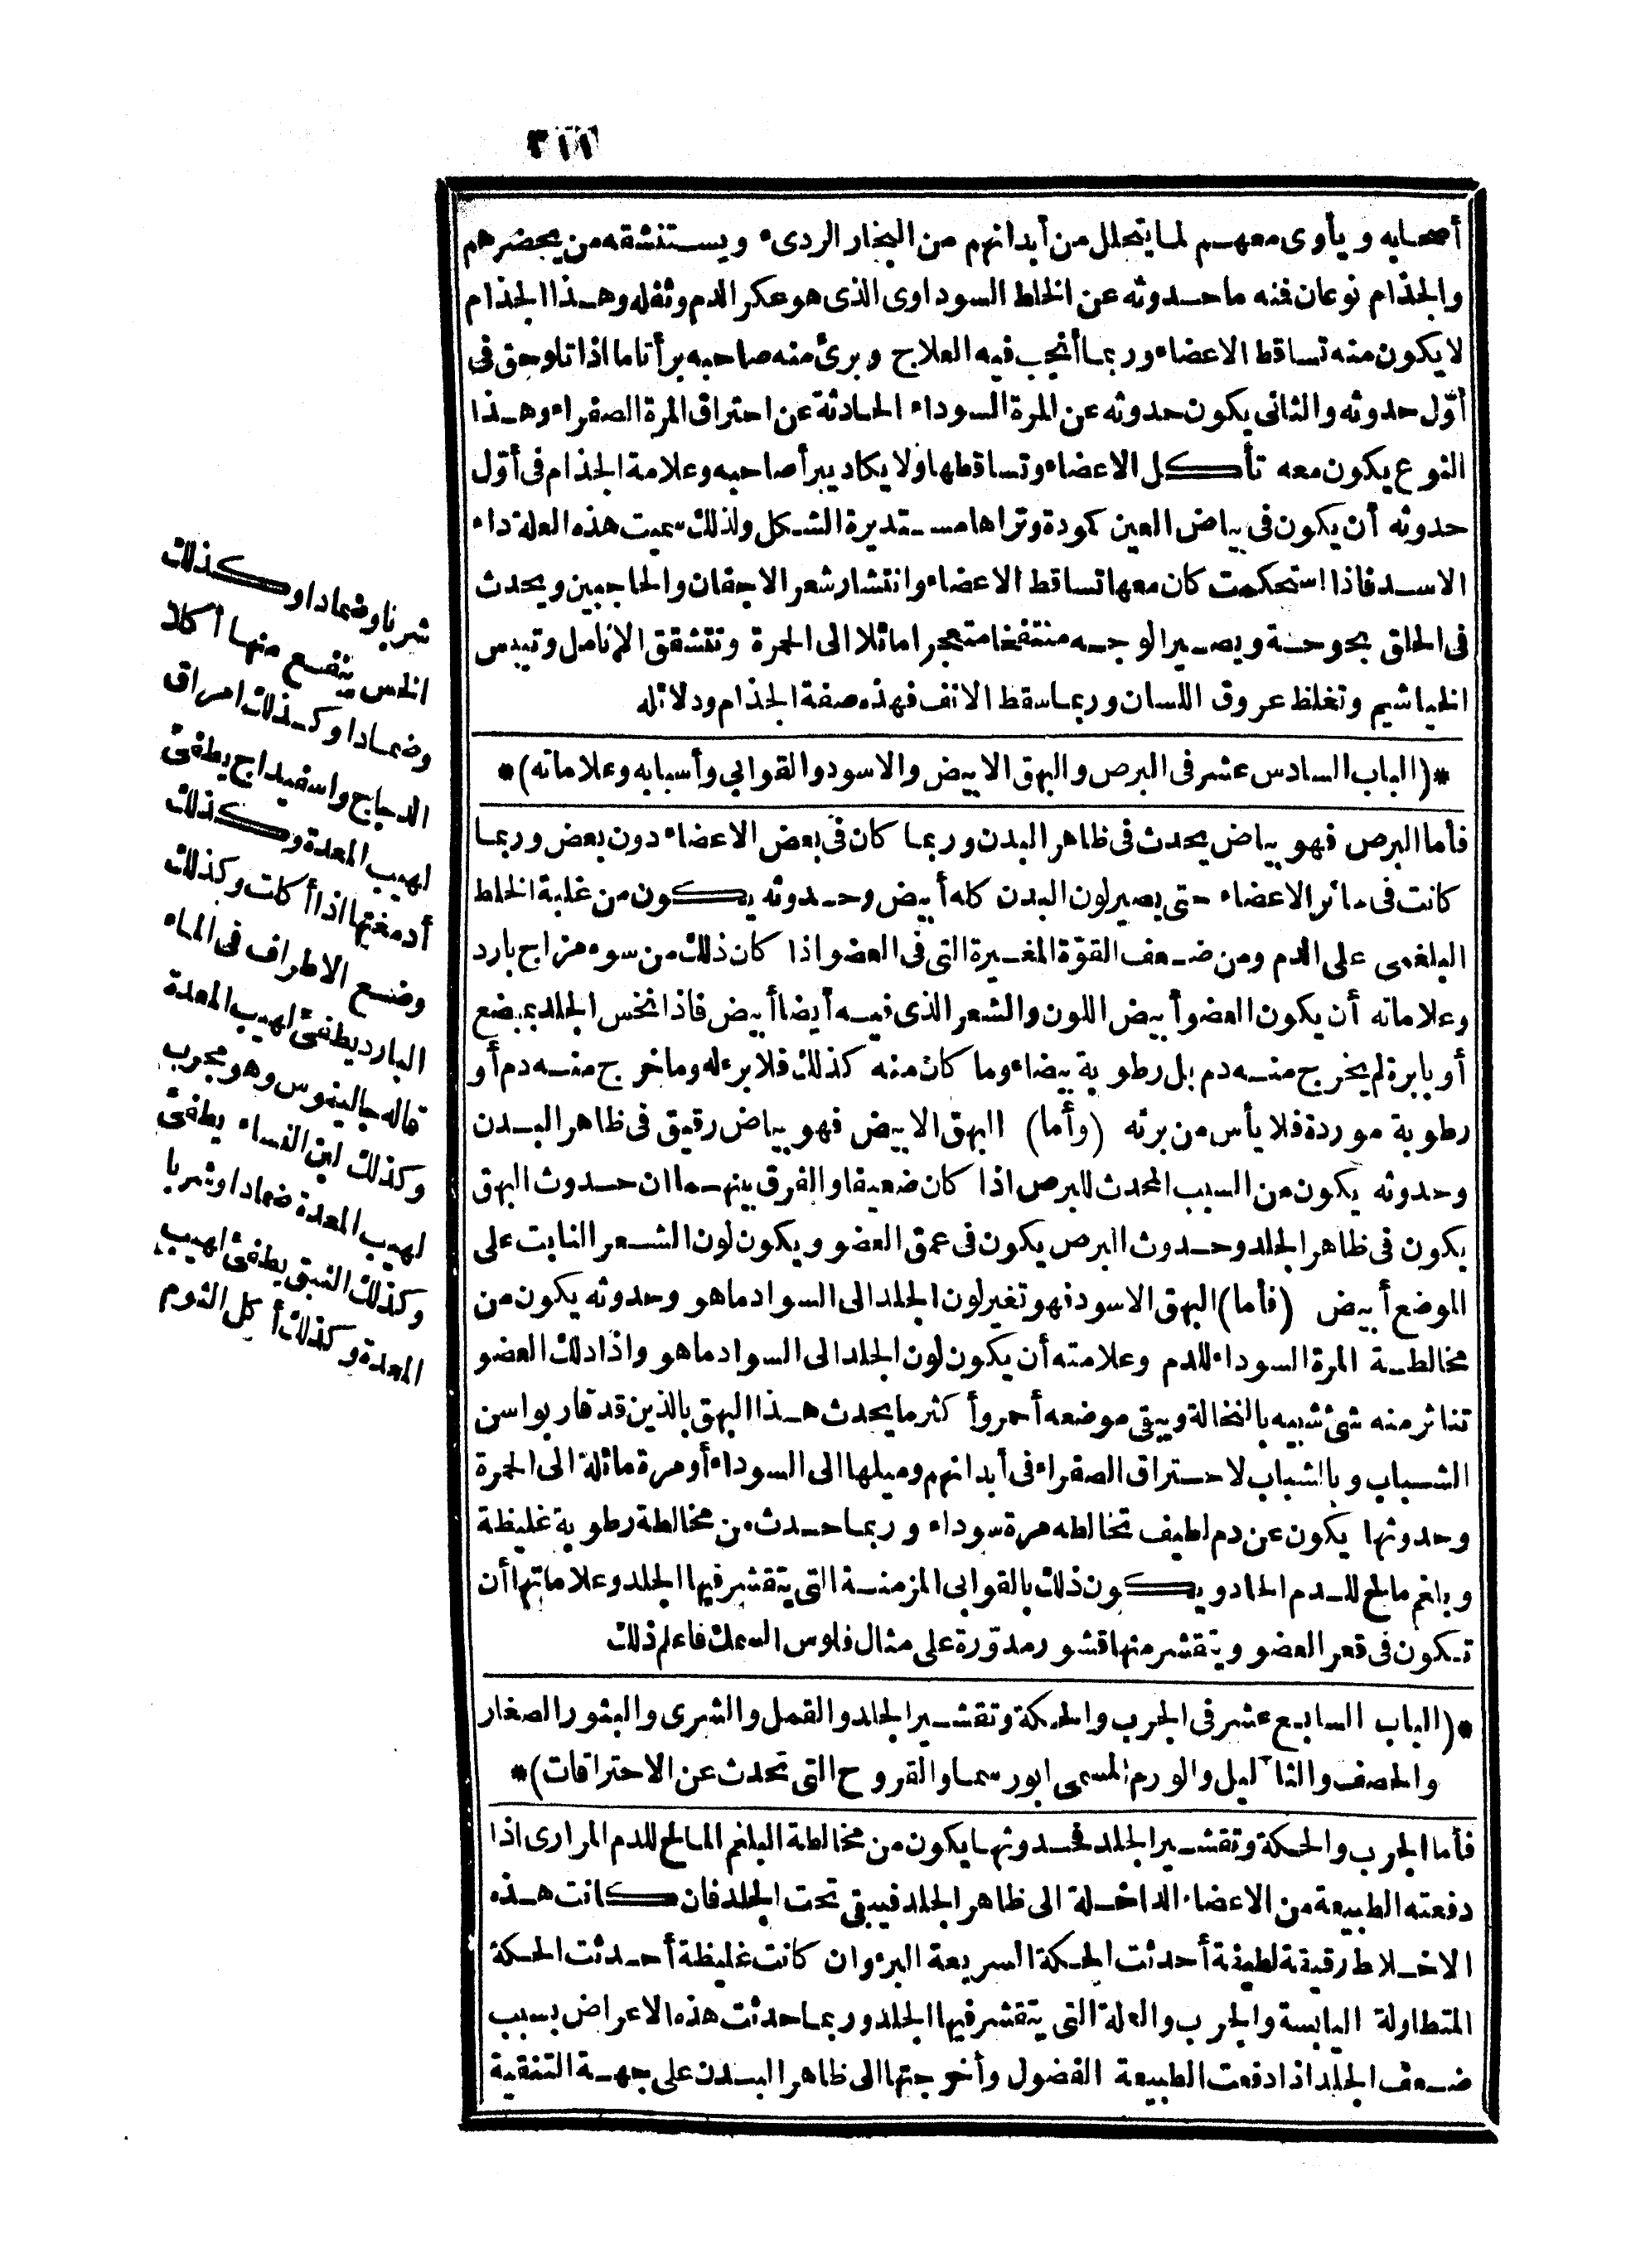 ٣١١
أصحابه ويأوى معهم لما يتحلل من أبدانهم من البخار الردىء ويستنشقه من يحضرهم
والجذام نوعان فنه ما حدوثه عن الخلط السوداوى الذى هو عكر الدم وثفله وهذا الجذام
لا يكون منه تساقط الاعضاء وربما أنجب فيه العلاج وبرئ منه صاحبه برأ تاما اذا تلوحق فى
أوّل حدوثه والثانى يكون حدوثه عن المرة السوداء الحادثة عن احتراق المرة الصفراء وهذا
النوع يكون معه تأكل الاعضاء وتساقطها ولا يكاد يبرأ صاحبه وعلامة الجذام فى أوّل
حدوثه أن يكون فى بياض العين كمودة وتراها مستديرة الشكل ولذلك سميت هذه العلة داء
الاسد فاذا استحكمت كان معها تساقط الاعضاء وانتشار شعر الاجفان والحاجبين ويحدث
فى الحلق بحوحة ويصير الوجه منتفخا متعجرا مائلا الى الحمرة وتتشقق الانامل وتيبس
الخياشيم وتغلظ عروق اللسان وربما سقط الانف فهذه صفة الجذام ودلائله
*(الباب السادس عشر فى البرص والبهق الابيض والاسود والقوابي وأسبابه وعلاماته)*
فأما البرص فهو بياض يحدث فى ظاهر البدن وربما كان فى بعض الاعضاء دون بعض وربما
كانت فى سائر الاعضاء حتى يصير لون البدن كله أبيض وحدوثه يكون من غلبة الخلط
البلغمى على الدم ومن ضعف القوّة المغيرة التى فى العضو اذا كان ذلك من سوء مزاج بارد
وعلاماته أن يكون العضو أبيض اللون والشعر الذى فيه أيضا أبيض فاذا نخس الجلد بمبضع
أو بابرة لم يخرج منه دم بل رطوبة بيضاء وما كان منه كذلك فلا برء له وما خرج منه دم أو
رطوبة موردة فلا يأس من برئه (وأما) البهق الابيض فهو بياض رقيق فى ظاهر البدن
وحدوثه يكون من السبب المحدث للبرص اذا كان ضعيفا والفرق بينهما ان حدوث البهق
يكون فى ظاهر الجلد وحدوث البرص يكون فى عمق العضو ويكون لون الشعر النابت على
الموضع أبيض (فأما) البهق الاسود فهو تغير لون الجلد الى السواد ما هو وحدوثه يكون من
مخالطة المرة السوداء للدم وعلامته أن يكون لون الجلد الى السواد ما هو واذا دلك العضو
تناثر منه شئ شبيه بالنخالة ويبقى موضعه أحمر وأكثر ما يحدث هذا البهق بالذين قد قاربوا سن
الشباب وبالشباب لاحتراق الصفراء فى أبدانهم وميلها الى السوداء أو مرة مائلة الى الحمرة
وحدوثها يكون عن دم لطيف تخالطه مرة سوداء وربما حدث من مخالطة رطوبة غليظة
وبلغم مالح للدم الحاد ويكون ذلك بالقوابى المزمنة التى يتقشر فيها الجلد وعلاماتها أن
تكون فى قعر العضو ويتقشر منها قشور مدوّرة على مثال فلوس السمك فاعلم ذلك
*(الباب السابع عشر فى الجرب والحكة وتقشير الجلد والقمل والشرى والبثور الصغار
والحصف والثآليل والورم المسمى ابورسما والقروح التى تحدث عن الاحتراقات)*
فأما الجرب والحكة وتقشير الجلد فحدوثها يكون من مخالطة البلغم المالح للدم المرارى اذا
دفعته الطبيعة من الاعضاء الداخلة الى ظاهر الجلد فيبقى تحت الجلد فان كانت هذه
الاخلاط رقيقة لطيفة أحدثت الحكة السريعة البرء وان كانت غليظة أحدثت الحكة
المتطاولة اليابسة والجرب والعلة التى يتقشر فيها الجلد وربما حدثت هذه الاعراض بسبب
ضعف الجلد اذا دفعت الطبيعة الفضول وأخرجتها الى ظاهر البدن على جهة التنقية
شربا وضمادا وكذلك
الخس ينفع منها أكلا
وضمادا وكذلك امراق
الدجاج واسفيداج يطفئ
لهيب المعدة وكذلك
أدمغتها اذا أكلت وكذلك
وضع الاطراف فى الماء
البارد يطفئ لهيب المعدة
قاله جالينوس وهو مجرب
وكذلك لبن النساء يطفئ
لهيب المعدة ضمادا وشربا
وكذلك النبق يطفئ لهيب
المعدة وكذلك أكل الثوم